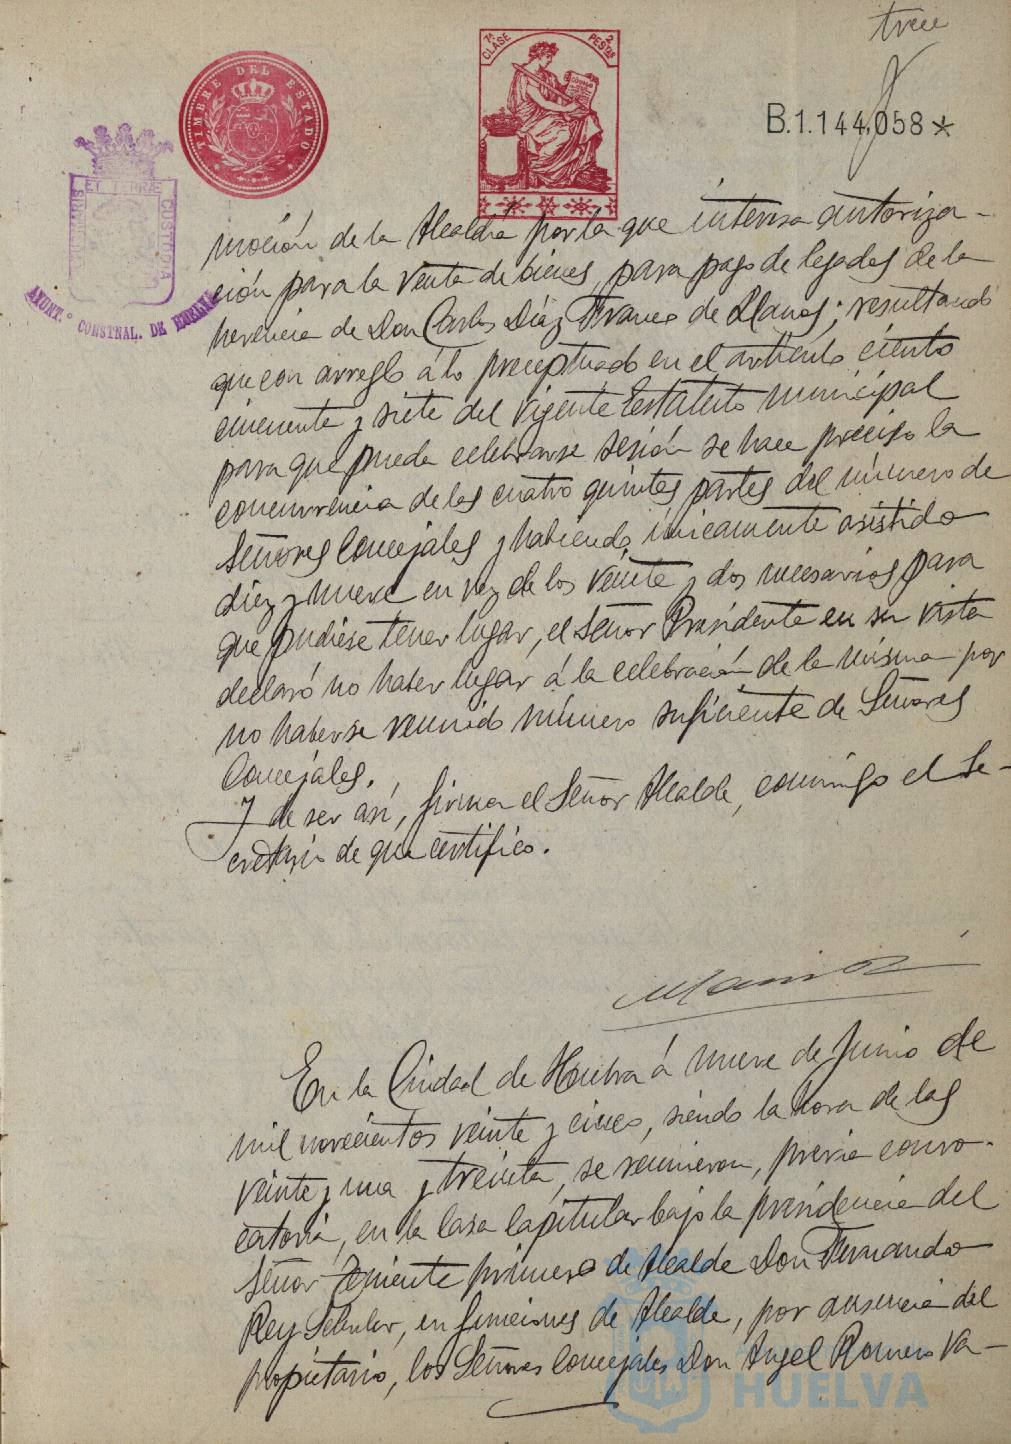 trece
7ª CLASE 2 PESTAS
TIMBRE DEL ESTADO
B.1.144,058 *
ET TERRÆ CUSTODIA
AYUNT.º CONSTNAL. DE HUELVA
moción de la Alcaldía por la que interesa autoriza-
ción para la venta de bienes, para pago de legados de la
herencia de Don Carlos Díaz Franco de Llanos; resultando
que con arreglo á lo preceptuado en el artículo ciento
cincuenta y siete del vigente Estatuto municipal
para que pueda celebrarse sesión se hace preciso la
concurrencia de las cuatro quintas partes del número de
Señores Concejales y habiendo únicamente asistido
diez y nueve en vez de los veinte y dos necesarios para
que pudiese tener lugar, el Señor Presidente en su vista
declaró no haber lugar á la celebración de la misma por
no haberse reunido número suficiente de Señores
Concejales.
Y de ser así, firma el Señor Alcalde, conmigo el Se-
cretario de que certifico.
En la Ciudad de Huelva á nueve de Junio de
mil novecientos veinte y cinco, siendo la hora de las
veinte y una y treinta, se reunieron, previa convo-
catoria, en la Casa Capitular bajo la presidencia del
Señor Teniente primero de Alcalde Don Fernando
Rey, en funciones de Alcalde, por ausencia del
propietario, los Señores Concejales Don Angel Romero Va-
HUELVA